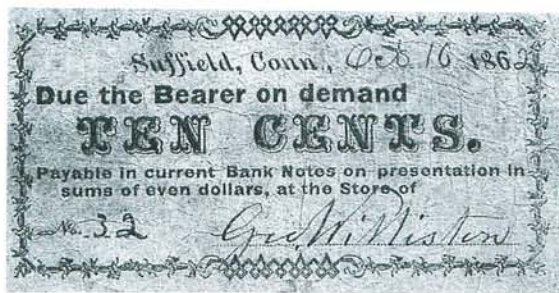 Suffield, Conn., Oct 16 1862
Due the Bearer on demand
TEN CENTS.
Payable in current Bank Notes on presentation in
sums of even dollars, at the Store of
No. 32 Geo. Williston